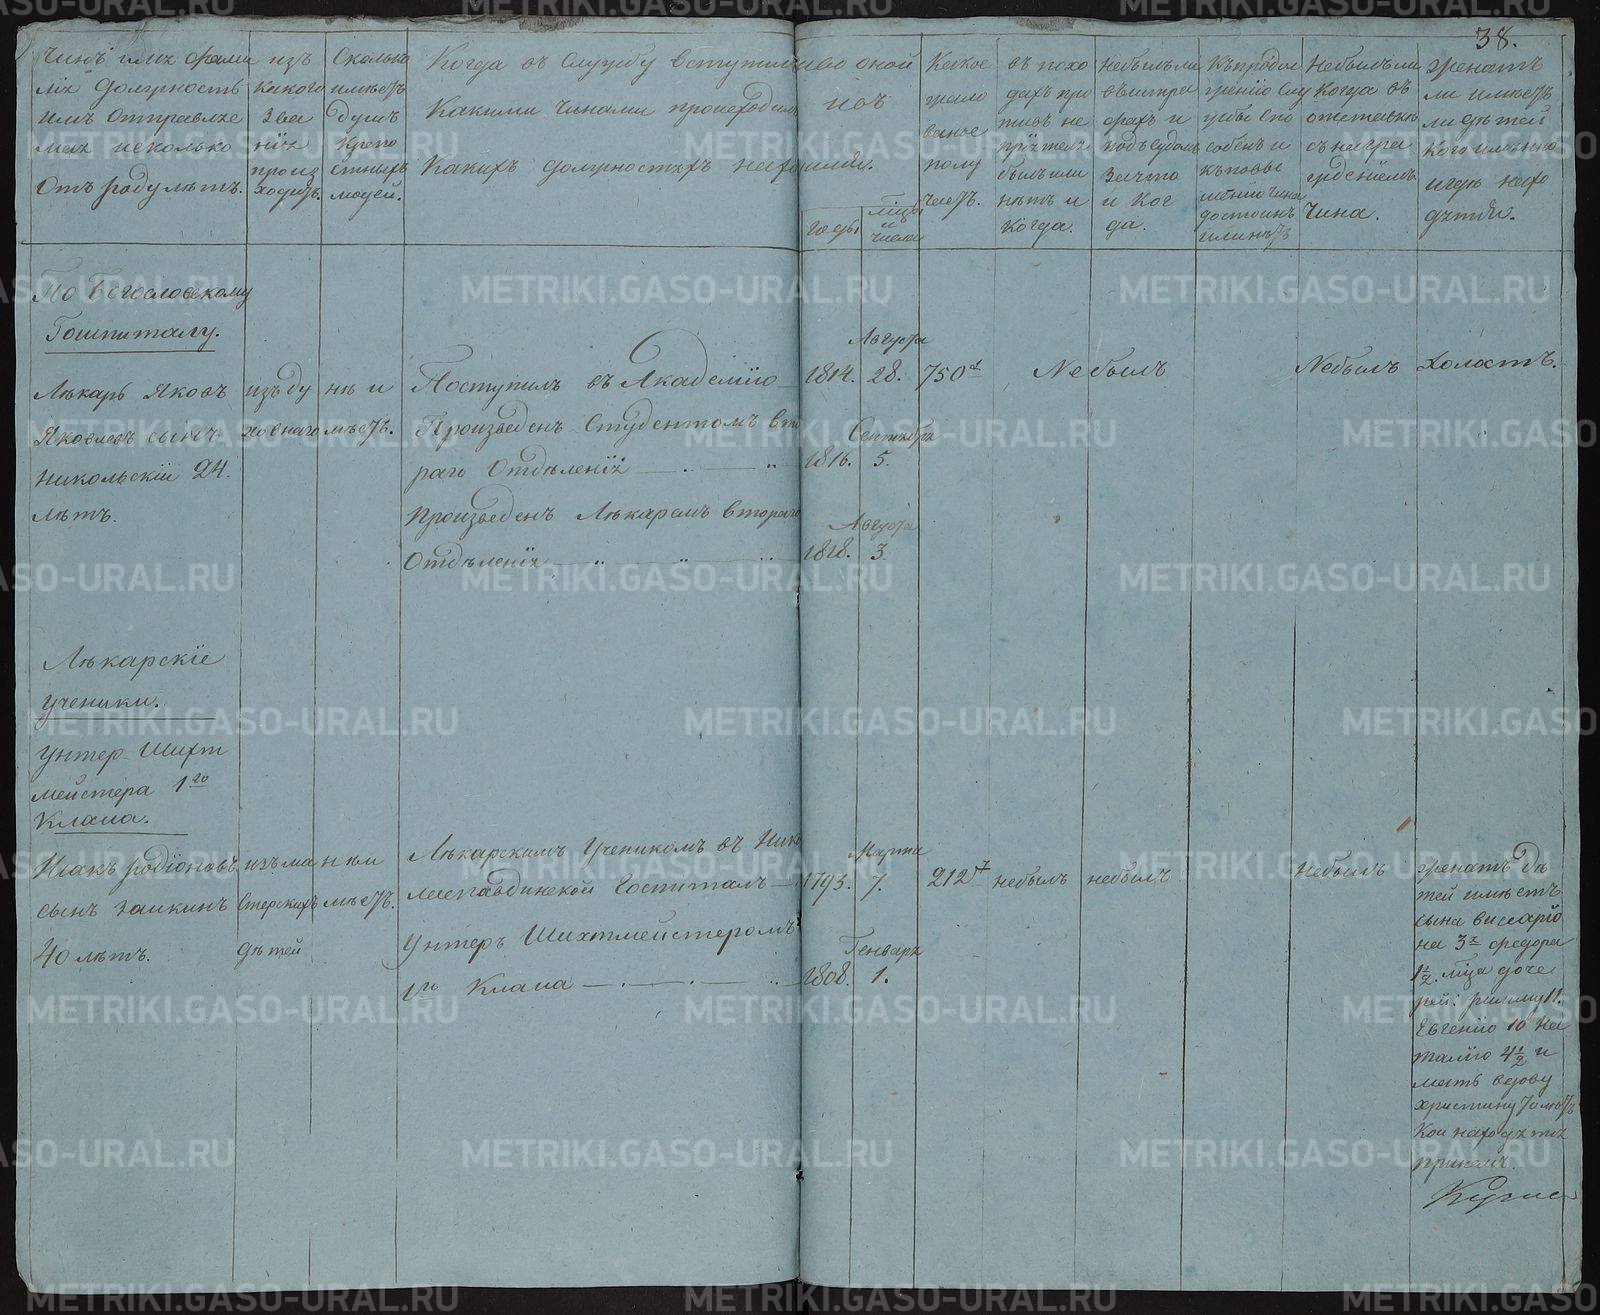 38.
Чинъ имя фами
лія должность
имъ отправляе
мая исколько
Отъ роду лѣтъ.
изъ
какого
зва
нія
произ
ходитъ.
Сколько
имѣетъ
душъ
крепо
стныхъ
людей.
Когда въ Службу вступилъ и во оной
Какими чинами происходилъ
Какихъ должностяхъ находился.
годы
м҃цы
и
числа
Какое
жало
ванье
полу
чаетъ.
въ похо
дахъ про
тивъ не
пріятеля
былъ или
нѣтъ и
Когда.
небылъ ли
въ штра
фахъ и
подъ судомъ
за что
и Ког
да.
Къ продол
женію слу
жбы спо
собенъ и
къ повы
шенію чина
достоинъ
или нѣтъ
Небылъ ли
Когда въ
отставкѣ
съ награ
жденіемъ
Чина.
женатъ
ли имѣетъ
ли дѣтей
Кого именно
и гдѣ нахо
дятся.
По Богословскому
Гошпиталу.
Лѣкарь Яковъ
Яковлевъ сынъ
Никольскій 24.
лѣтъ.
изъ ду
ховнаго
не и
мѣетъ.
Поступилъ въ Академію
Августа
1814. 28.
750
Небылъ
Небылъ
Холостъ.
Произведенъ Студентомъ вто
раго Отдѣленія
Сентября
1816. 5.
Произведенъ Лѣкаремъ втораго
Отдѣленія
Августа
1818. 3.
Лѣкарскіе
ученики.
Унтер Шихт
мейстера 1го
Класа.
Исакъ родіоновъ
сынъ заикинъ
40 лѣтъ.
изъ ма
стерскихъ
дѣтей
не и
мѣетъ.
Лѣкарскимъ Ученикомъ въ Нико
лаепавдинской Госпиталь
Марта
1793. 7.
212
небылъ
небылъ
Небылъ
Унтеръ Шихтмейстеромъ
1го Класа
Генваря
1808. 1.
женатъ дѣ
тей имѣетъ
сына виссаріо
на 3х федора
1/2. м҃ца доче
рей: римму 11.
Евгенію 10 На
талію 4 1/2 и
мать вдову
христину 70 лѣтъ
Кои находятся
принемъ.
METRIKI.GASO-URAL.RU